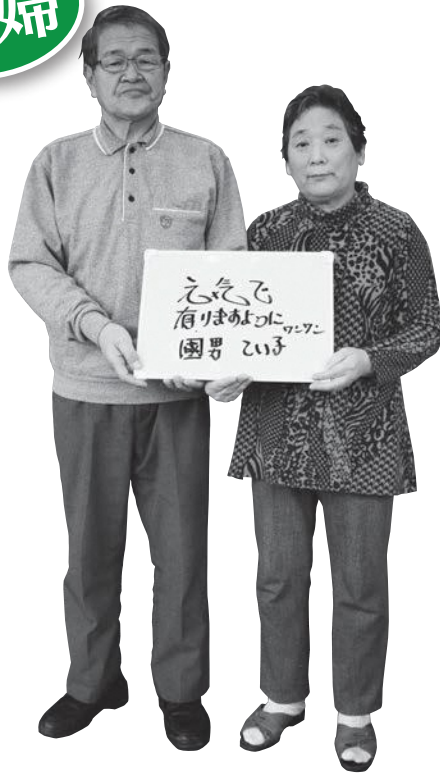 婦
元気で
有りますように
ワンワン
國男 てい子